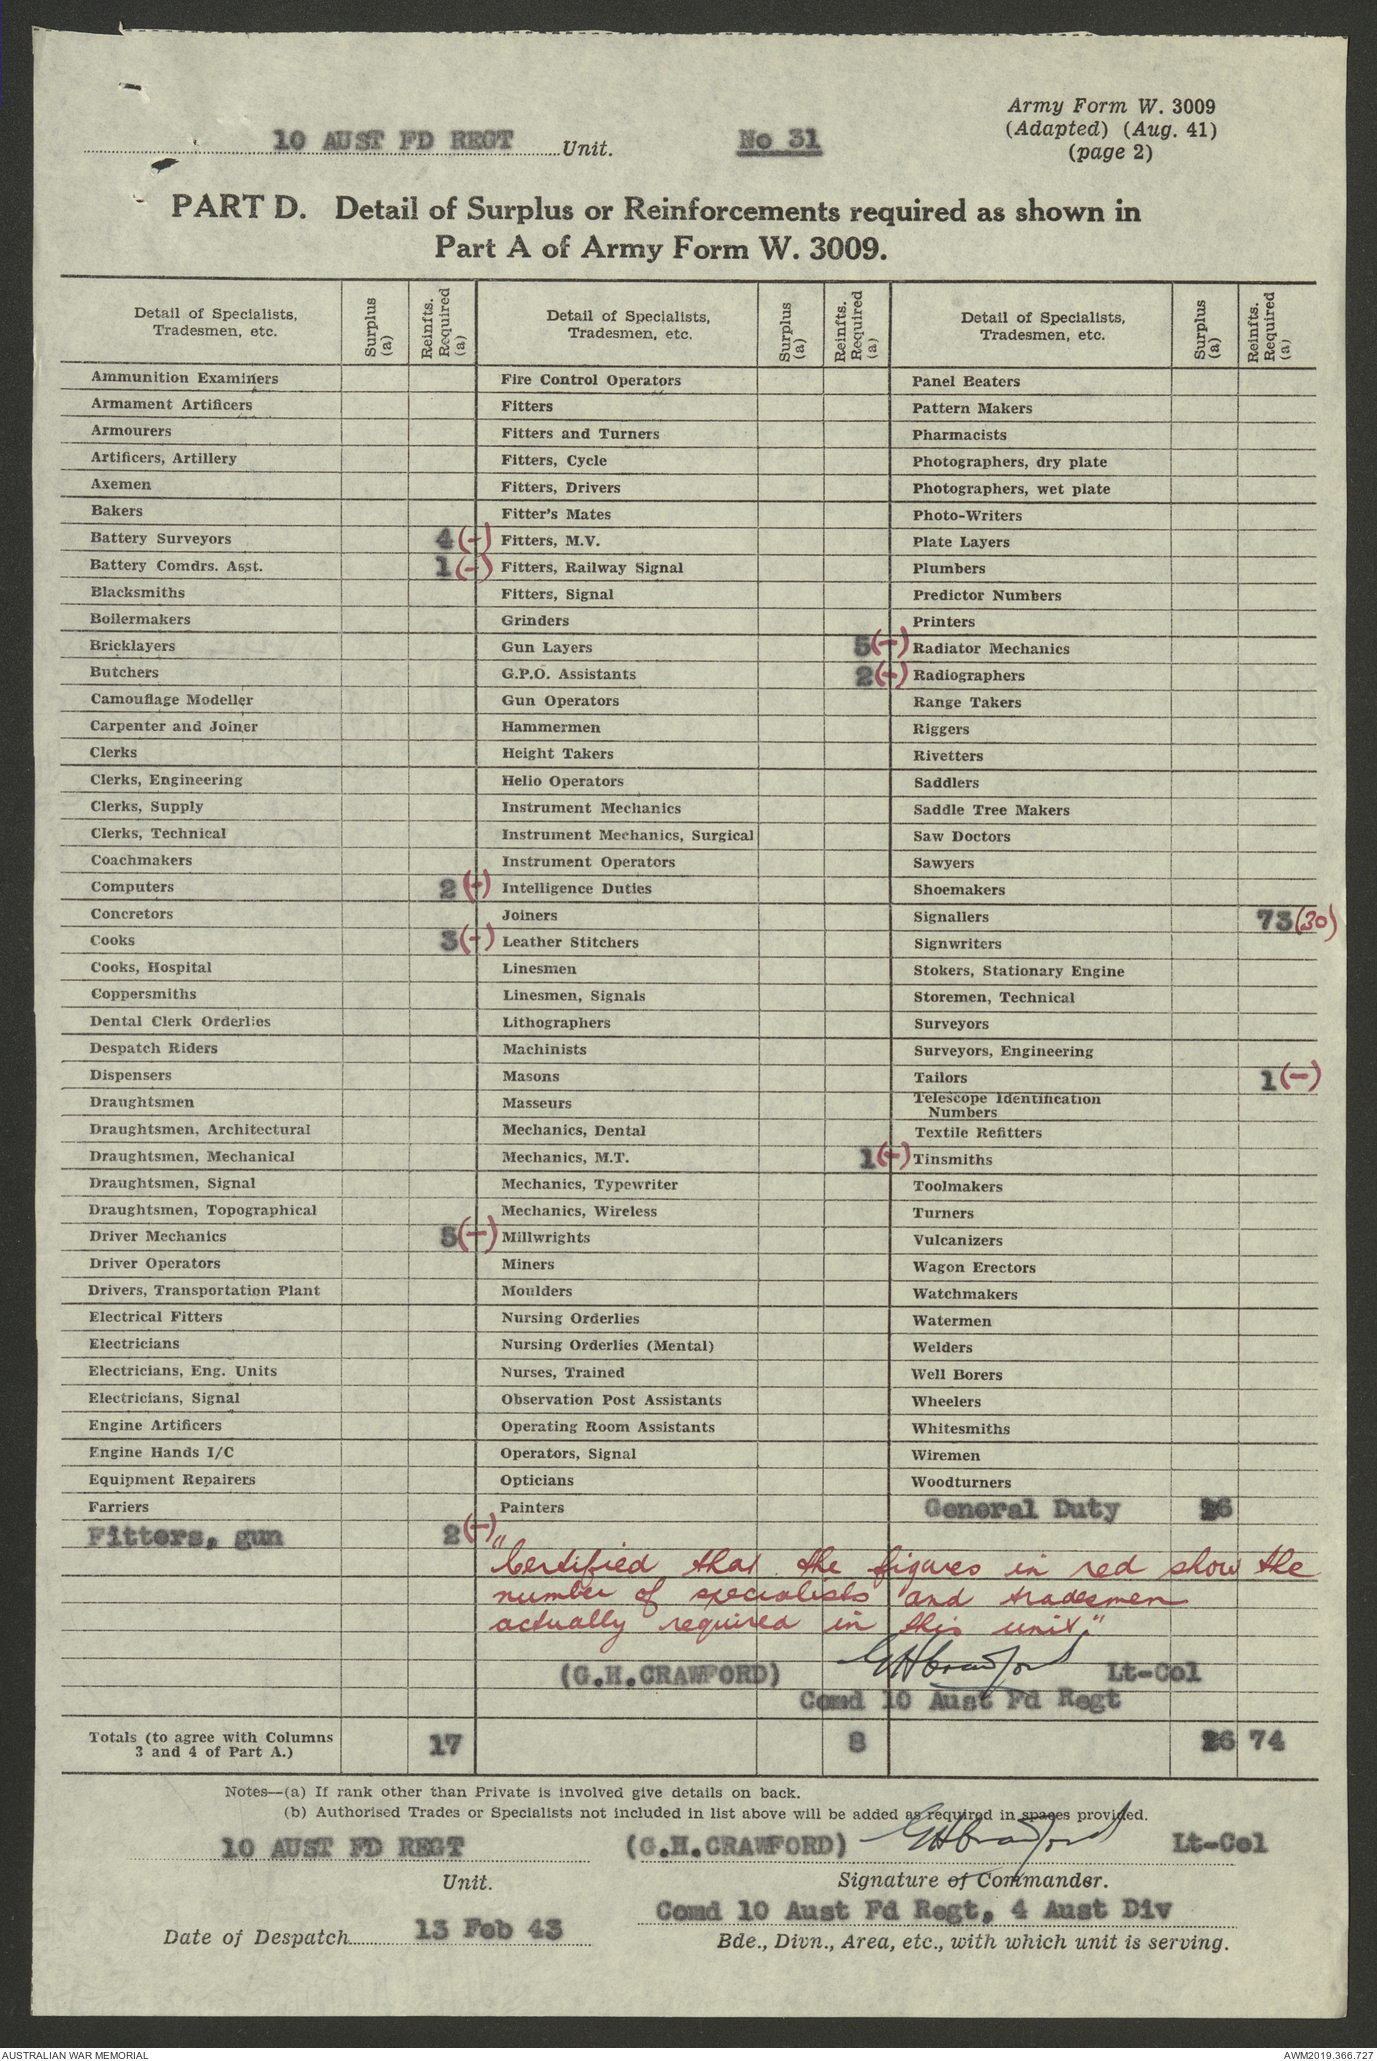 Army Form W. 3009
(Adapted) (Aug. 41)
(page 2)
10 AUST FD REGT Unit. No 31
PART D. Detail of Surplus or Reinforcements required as shown in
Part A of Army Form W. 3009.
Detail of Specialists, Tradesmen, etc. Surplus (a) Reinfts. Required (a)
Ammunition Examiners
Armament Artificers
Armourers
Artificers, Artillery
Axemen
Bakers
Battery Surveyors 4 (-)
Battery Comdrs. Asst. 1 (-)
Blacksmiths
Boilermakers
Bricklayers
Butchers
Camouflage Modeller
Carpenter and Joiner
Clerks
Clerks, Engineering
Clerks, Supply
Clerks, Technical
Coachmakers
Computers 2 (-)
Concretors
Cooks 3 (-)
Cooks, Hospital
Coppersmiths
Dental Clerk Orderlies
Despatch Riders
Dispensers
Draughtsmen
Draughtsmen, Architectural
Draughtsmen, Mechanical
Draughtsmen, Signal
Draughtsmen, Topographical
Driver Mechanics 5 (-)
Driver Operators
Drivers, Transportation Plant
Electrical Fitters
Electricians
Electricians, Eng. Units
Electricians, Signal
Engine Artificers
Engine Hands I/C
Equipment Repairers
Farriers
Fitters, gun 2 (-)
Detail of Specialists, Tradesmen, etc. Surplus (a) Reinfts. Required (a)
Fire Control Operators
Fitters
Fitters and Turners
Fitters, Cycle
Fitters, Drivers
Fitter's Mates
Fitters, M.V.
Fitters, Railway Signal
Fitters, Signal
Grinders
Gun Layers 5 (-)
G.P.O. Assistants 2 (-)
Gun Operators
Hammermen
Height Takers
Helio Operators
Instrument Mechanics
Instrument Mechanics, Surgical
Instrument Operators
Intelligence Duties
Joiners
Leather Stitchers
Linesmen
Linesmen, Signals
Lithographers
Machinists
Masons
Masseurs
Mechanics, Dental
Mechanics, M.T. 1 (-)
Mechanics, Typewriter
Mechanics, Wireless
Millwrights
Miners
Moulders
Nursing Orderlies
Nursing Orderlies (Mental)
Nurses, Trained
Observation Post Assistants
Operating Room Assistants
Operators, Signal
Opticians
Painters
Detail of Specialists, Tradesmen, etc. Surplus (a) Reinfts. Required (a)
Panel Beaters
Pattern Makers
Pharmacists
Photographers, dry plate
Photographers, wet plate
Photo-Writers
Plate Layers
Plumbers
Predictor Numbers
Printers
Radiator Mechanics
Radiographers
Range Takers
Riggers
Rivetters
Saddlers
Saddle Tree Makers
Saw Doctors
Sawyers
Shoemakers
Signallers 73 (30)
Signwriters
Stokers, Stationary Engine
Storemen, Technical
Surveyors
Surveyors, Engineering
Tailors 1 (-)
Telescope Identification
Numbers
Textile Refitters
Tinsmiths
Toolmakers
Turners
Vulcanizers
Wagon Erectors
Watchmakers
Watermen
Welders
Well Borers
Wheelers
Whitesmiths
Wiremen
Woodturners
General Duty 26
"Certified that the figures in red show the
number of specialists and tradesmen
actually required in this unit."
(G.H.CRAWFORD) GHCrawford Lt-Col
Comd 10 Aust Fd Regt
Totals (to agree with Columns
3 and 4 of Part A.) 17 8 26 74
Notes—(a) If rank other than Private is involved give details on back.
(b) Authorised Trades or Specialists not included in list above will be added as required in spaces provided.
10 AUST FD REGT (G.H.CRAWFORD) GHCrawford Lt-Col
Unit. Signature of Commander.
Comd 10 Aust Fd Regt, 4 Aust Div
Date of Despatch 13 Feb 43
Bde., Divn., Area, etc., with which unit is serving.
AUSTRALIAN WAR MEMORIAL AWM2019.366.727